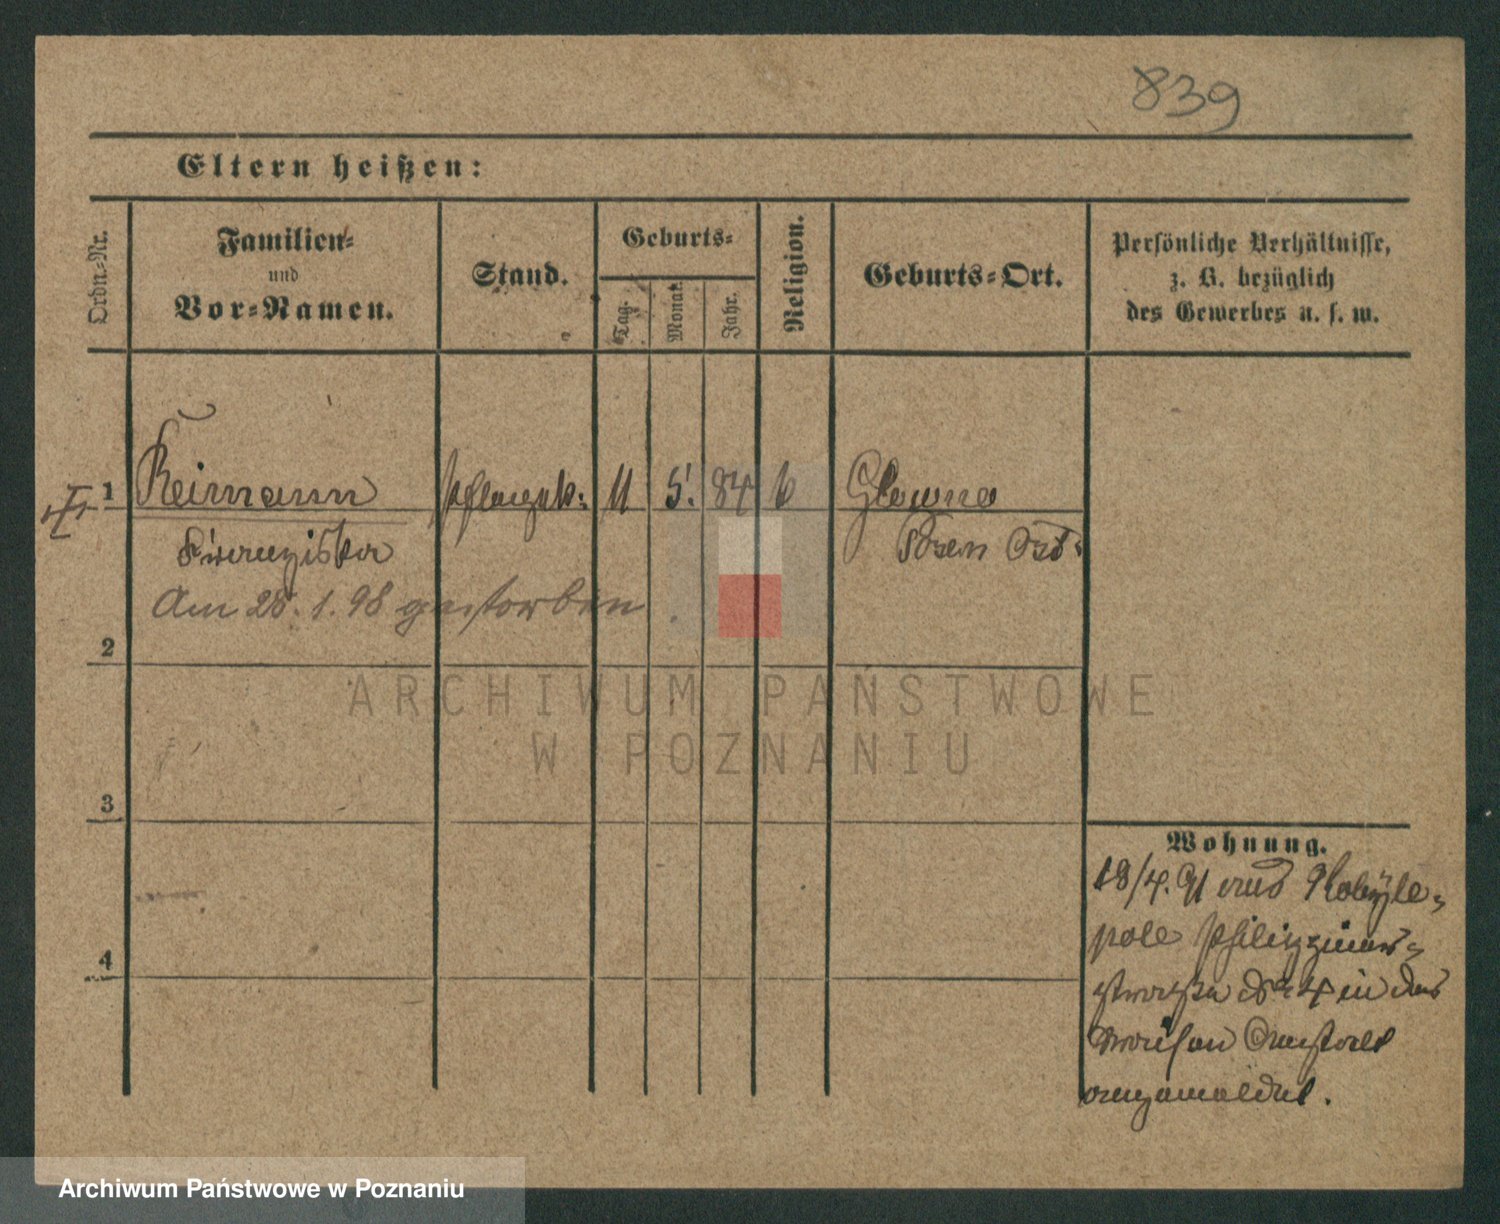 839
Eltern heißen:
Ordn.-Nr.
Familien-
und
Vor-Namen.
Stand.
Geburts-
Tag.
Monat.
Jahr.
Religion.
Geburts-Ort.
Persönliche Verhältnisse,
z. B. bezüglich
des Gewerbes u. s. w.
1 Reimann 11 5. 84 Glowno
Franziska Posen Ost
Am 28. 1. 98 gestorben
2
ARCHIWUM PAŃSTWOWE
W POZNANIU
3
Wohnung.
18/4. 91 aus Kobyle-
pole
4
straße № 4 in das
Waisen Anstalt
angemeldet.
Archiwum Państwowe w Poznaniu